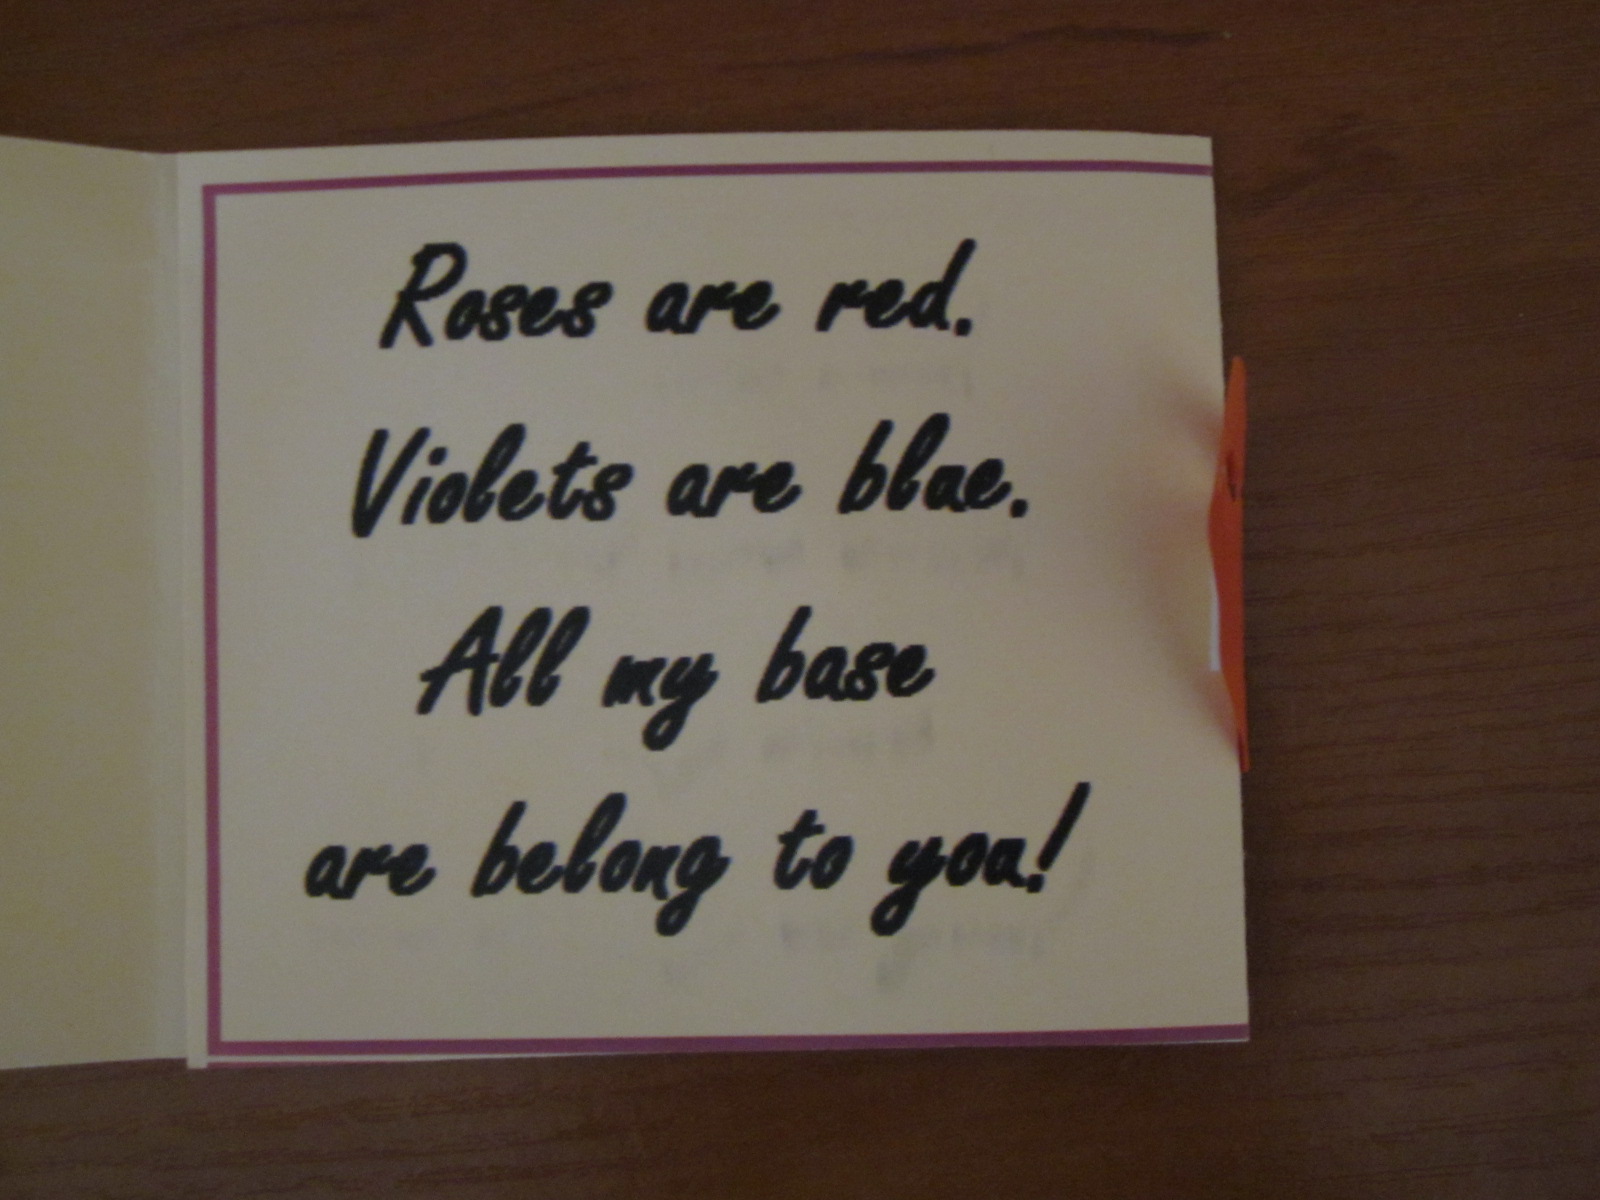 Roses are red.
Violets are blue.
All my base
are belong to you!